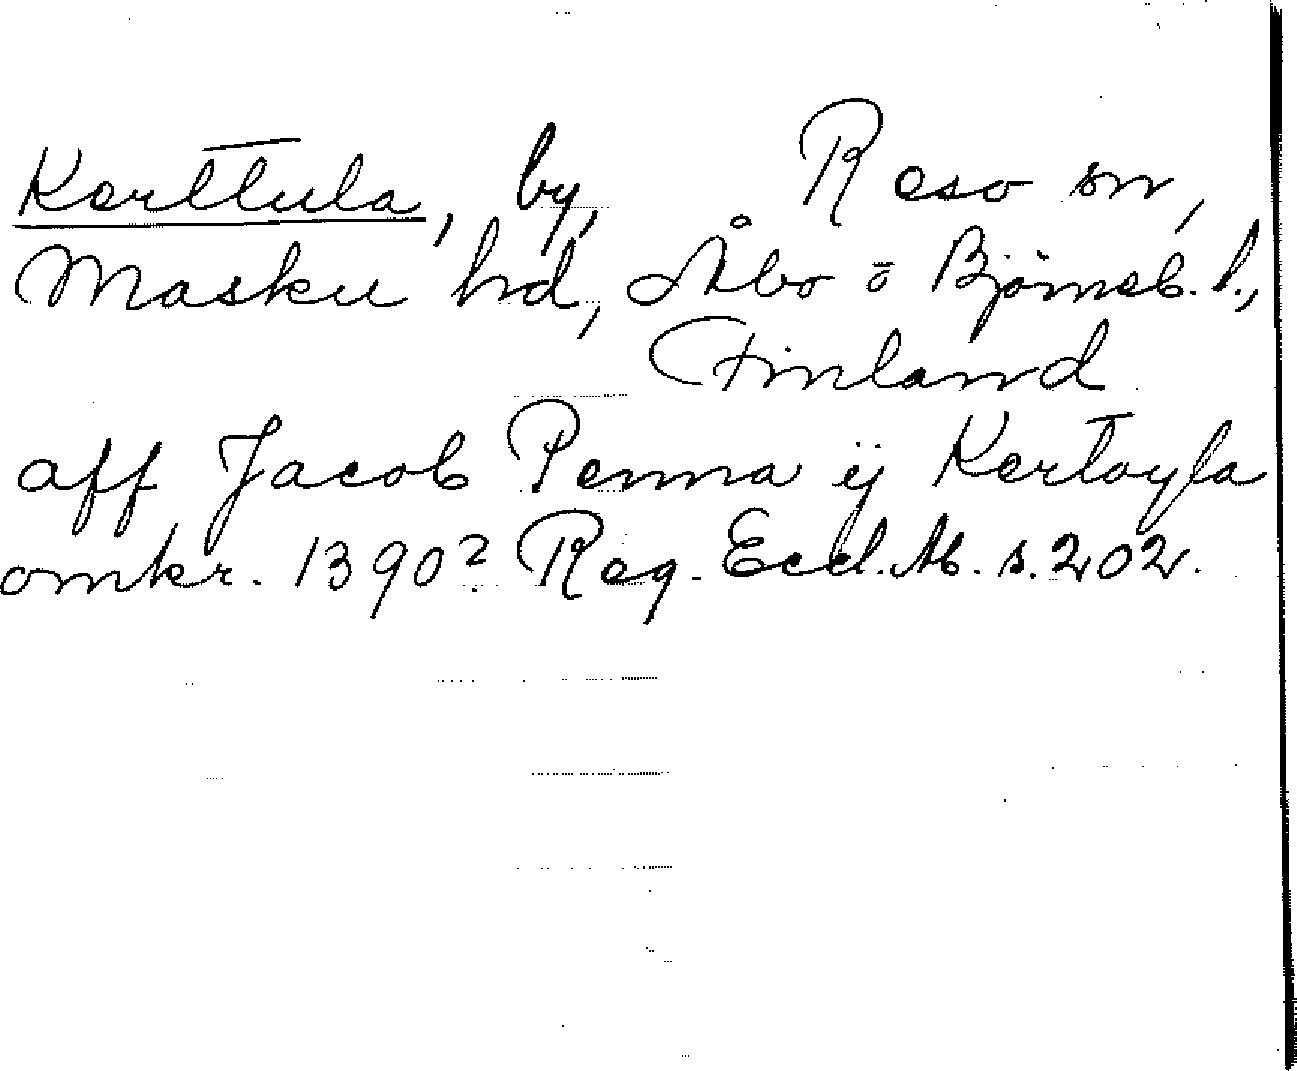 Kerttula, by, Reso sn,
Masku hd, Åbo o Björneb. l.,
Finland
aff Jacob Penna ij Kertoyla
omkr. 1390? Reg. Eccl. Ab. s. 202.